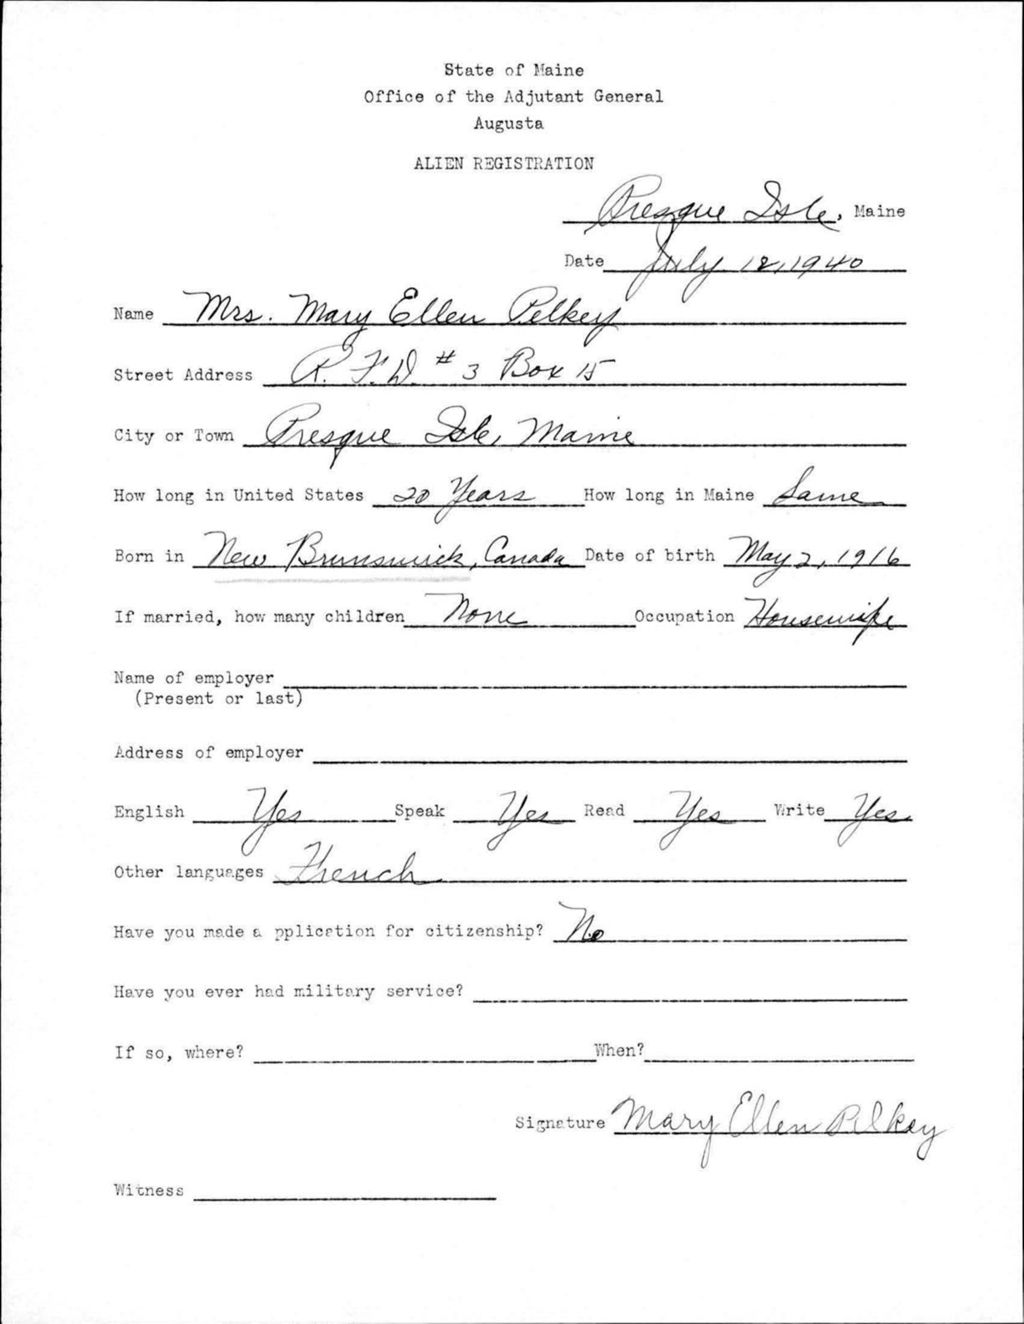 State of Maine
Office of the Adjutant General
Augusta
ALIEN REGISTRATION
Presque Isle, Maine
Date July 12, 1940
Name Mrs. Mary Ellen Pelkey
Street Address R. F. D. # 3 Box 15
City or Town Presque Isle, Maine
How long in United States 20 Years How long in Maine Same
Born in New Brunswick, Canada Date of birth May 2, 1916
If married, how many children None Occupation Housewife
Name of employer
(Present or last)
Address of employer
English Yes Speak Yes Read Yes Write Yes
Other languages French
Have you made a pplication for citizenship? No
Have you ever had military service?
If so, where? When?
Signature Mary Ellen Pelkey
Witness